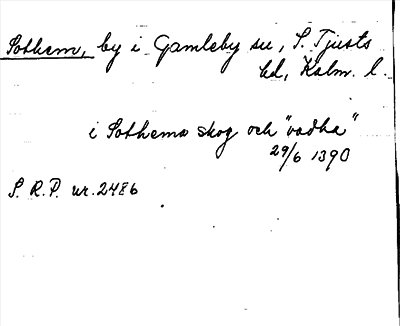 Sothem, by i Gamleby su, S. Tjusts
hd, Kalm. l.
i Sothema skog och "vadha"
29/6 1390
S. R. P. nr. 2486